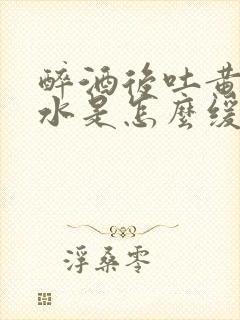 醉酒後吐黃
水是怎麼緩
浮桑零